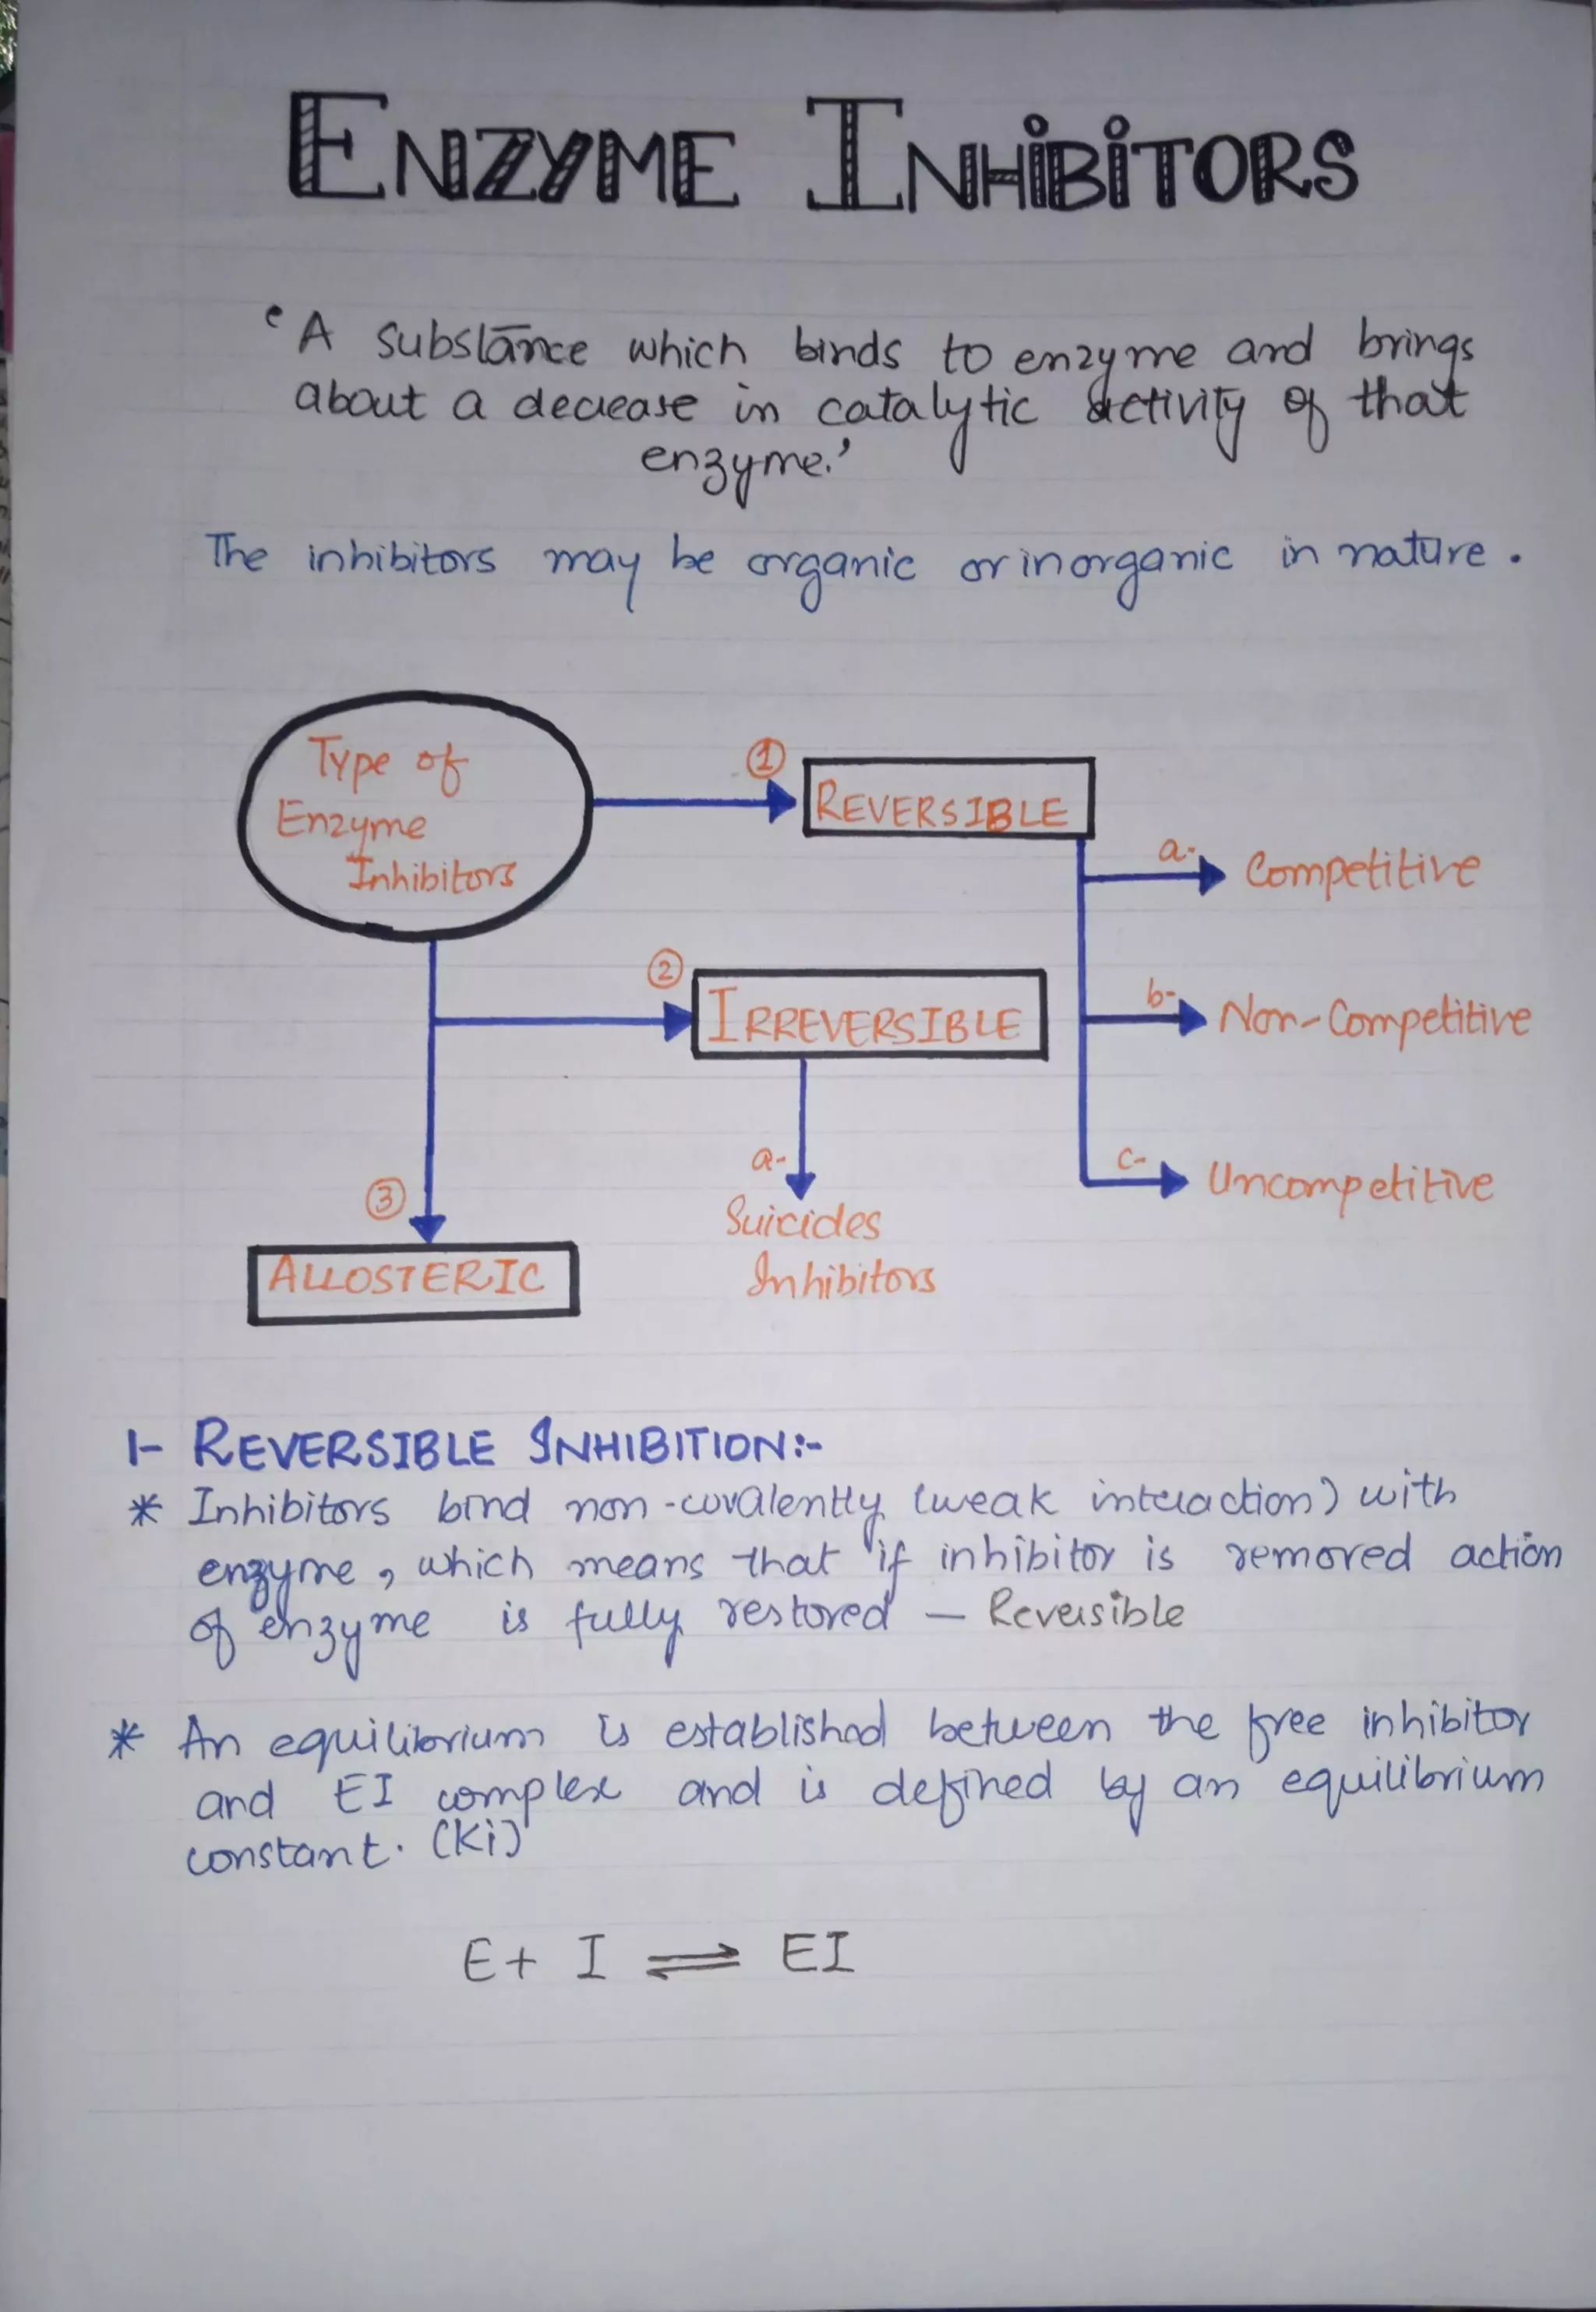 ENZYME INHIBITORS
‘A substance which binds to enzyme and brings
about a decrease in catalytic activity of that
enzyme.’
The inhibitors may be organic or inorganic in nature.
Type of
Enzyme
Inhibitors
① REVERSIBLE
a- Competitive
② IRREVERSIBLE
b- Non-Competitive
a-
c- Uncompetitive
③
Suicides
Inhibitors
ALLOSTERIC
1- REVERSIBLE INHIBITION:-
* Inhibitors bind non-covalently (weak interaction) with
enzyme, which means that if inhibitor is removed action
of enzyme is fully restored — Reversible
* An equilibrium is established between the free inhibitor
and EI complex and is defined by an equilibrium
constant. (Ki)
E + I ⇌ EI